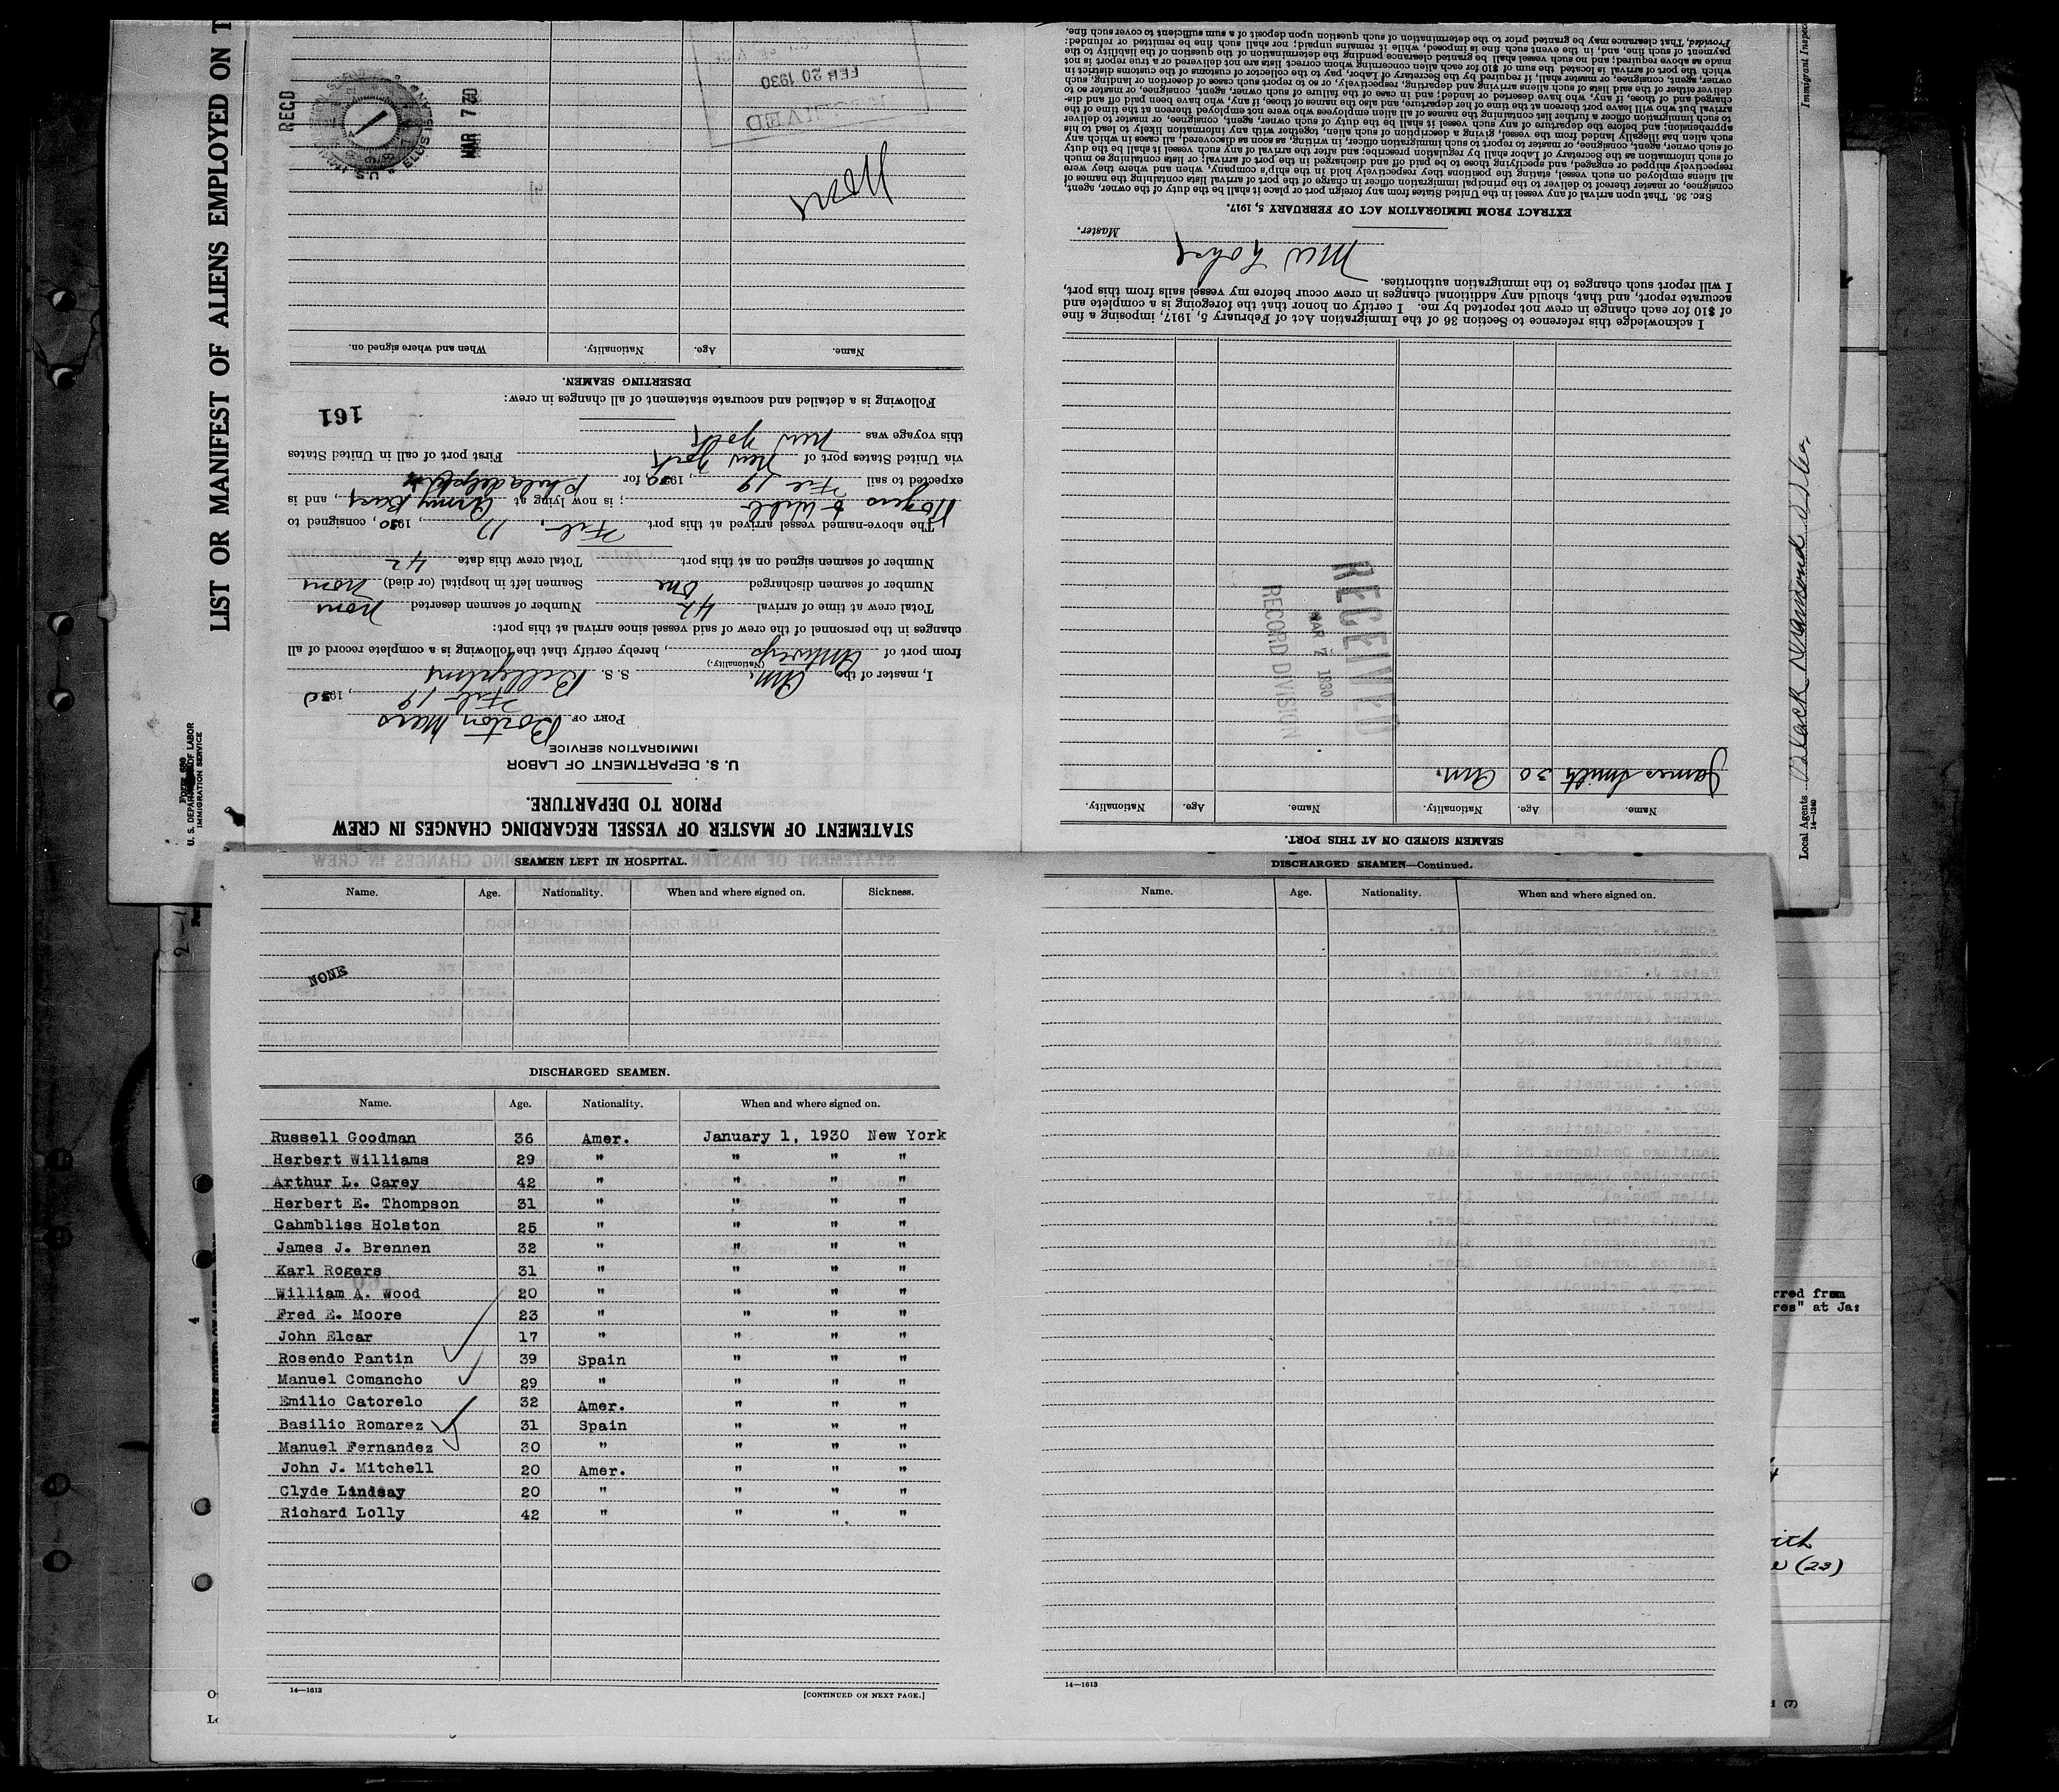 LIST OR MANIFEST OF ALIENS EMPLOYED ON T
Form 680
U. S. DEPARTMENT OF LABOR
IMMIGRATION SERVICE
STATEMENT OF MASTER OF VESSEL REGARDING CHANGES IN CREW
PRIOR TO DEPARTURE.
U. S. DEPARTMENT OF LABOR
IMMIGRATION SERVICE
PORT OF Boston, Mass
Feb 19, 1930
I, master of the Am. (Nationality.) S. S. Bellepline
from port of Antwerp, hereby certify that the following is a complete record of all
changes in the personnel of the crew of said vessel since arrival at this port:
Total crew at time of arrival 42 Number of seamen deserted none
Number of seamen discharged one Seamen left in hospital (or died) none
Number of seamen signed on at this port. Total crew this date 42
The above-named vessel arrived at this port Feb. 17, 1930, consigned to
Rogers & Webb; is now lying at Army Base, and is
expected to sail Feb 19, 1930, for Philadelphia
via United States port of New York First port of call in United States
this voyage was New York
Following is a detailed and accurate statement of all changes in crew:
161
DESERTING SEAMEN.
Name. Age. Nationality. When and where signed on.
None
RECEIVED
FEB 20 1930
RECD
MAR 7 30
U.S. IMMIG
ELLIS ISLAND
SEAMEN SIGNED ON AT THIS PORT.
Name. Age. Nationality. Name. Age. Nationality.
James Smith 30 Am.
RECEIVED
MAR 7 1930
RECORD DIVISION
I acknowledge this reference to Section 36 of the Immigration Act of February 5, 1917, imposing a fine
of $10 for each change in crew not reported by me. I certify on honor that the foregoing is a complete and
accurate report, and that, should any additional changes in crew occur before my vessel sails from this port,
I will report such changes to the immigration authorities.
Master.
EXTRACT FROM IMMIGRATION ACT OF FEBRUARY 5, 1917.
SEC. 36. That upon arrival of any vessel in the United States from any foreign port or place it shall be the duty of the owner, agent,
consignee, or master thereof to deliver to the principal immigration officer in charge of the port of arrival lists containing the names of
all aliens employed on such vessel, stating the positions they respectively hold in the ship's company, when and where they were
respectively shipped or engaged, and specifying those to be paid off and discharged in the port of arrival; or lists containing so much
of such information as the Secretary of Labor shall by regulation prescribe; and after the arrival of any such vessel it shall be the duty
of such owner, agent, consignee, or master to report to such immigration officer, in writing, as soon as discovered, all cases in which any
such alien has illegally landed from the vessel, giving a description of such alien, together with any information likely to lead to his
apprehension; and before the departure of any such vessel it shall be the duty of such owner, agent, consignee, or master to deliver
to such immigration officer a further list containing the names of all alien employees who were not employed thereon at the time of the
arrival but who will leave port thereon at the time of her departure, and also the names of those, if any, who have been paid off and dis-
charged and of those, if any, who have deserted or landed; and in case of the failure of such owner, agent, consignee, or master so to
deliver either of the said lists of such aliens arriving and departing, respectively, or so to report such cases of desertion or landing, such
owner, agent, consignee, or master shall, if required by the Secretary of Labor, pay to the collector of customs of the customs district in
which the port of arrival is located the sum of $10 for each alien concerning whom correct lists are not delivered or a true report is not
made as above required; and no such vessel shall be granted clearance pending the determination of the question of the liability to the
payment of such fine, and, in the event such fine is imposed, while it remains unpaid; nor shall such fine be remitted or refunded:
Provided, That clearance may be granted prior to the determination of such question upon deposit of a sum sufficient to cover such fine.
Local Agents Black Diamond S S Co.
14—1240
SEAMEN LEFT IN HOSPITAL.
Name. Age. Nationality. When and where signed on. Sickness.
NONE
DISCHARGED SEAMEN.
Name. Age. Nationality. When and where signed on.
Russell Goodman 36 Amer. January 1, 1930 New York
Herbert Williams 29 " " " "
Arthur L. Carey 42 " " " "
Herbert E. Thompson 31 " " " "
Cahmbliss Holston 25 " " " "
James J. Brennen 32 " " " "
Karl Rogers 31 " " " "
William A. Wood 20 " " " "
Fred E. Moore 23 " " " "
John Elcar 17 " " " "
Rosendo Pantin 39 Spain " " "
Manuel Comancho 29 " " " "
Emilio Catorelo 32 Amer. " " "
Basilio Romarez 31 Spain " " "
Manuel Fernandez 30 " " " "
John J. Mitchell 20 Amer. " " "
Clyde Lindsay 20 " " " "
Richard Lolly 42 " " " "
14—1613
[CONTINUED ON NEXT PAGE.]
DISCHARGED SEAMEN—Continued.
Name. Age. Nationality. When and where signed on.
14—1613
rred from
res" at Ja:
(23)
(7)